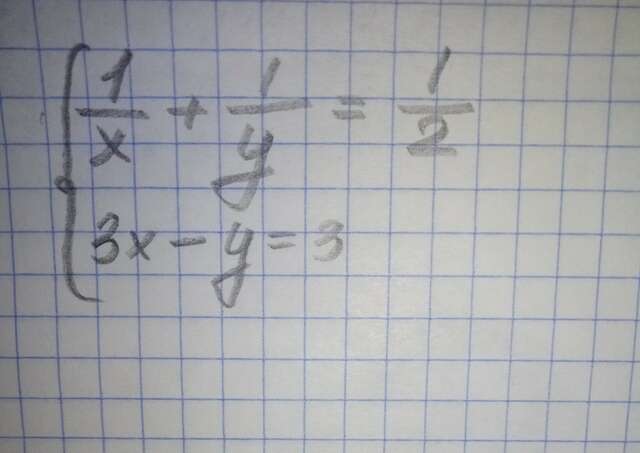 1/x + 1/y = 1/2
3x - y = 3